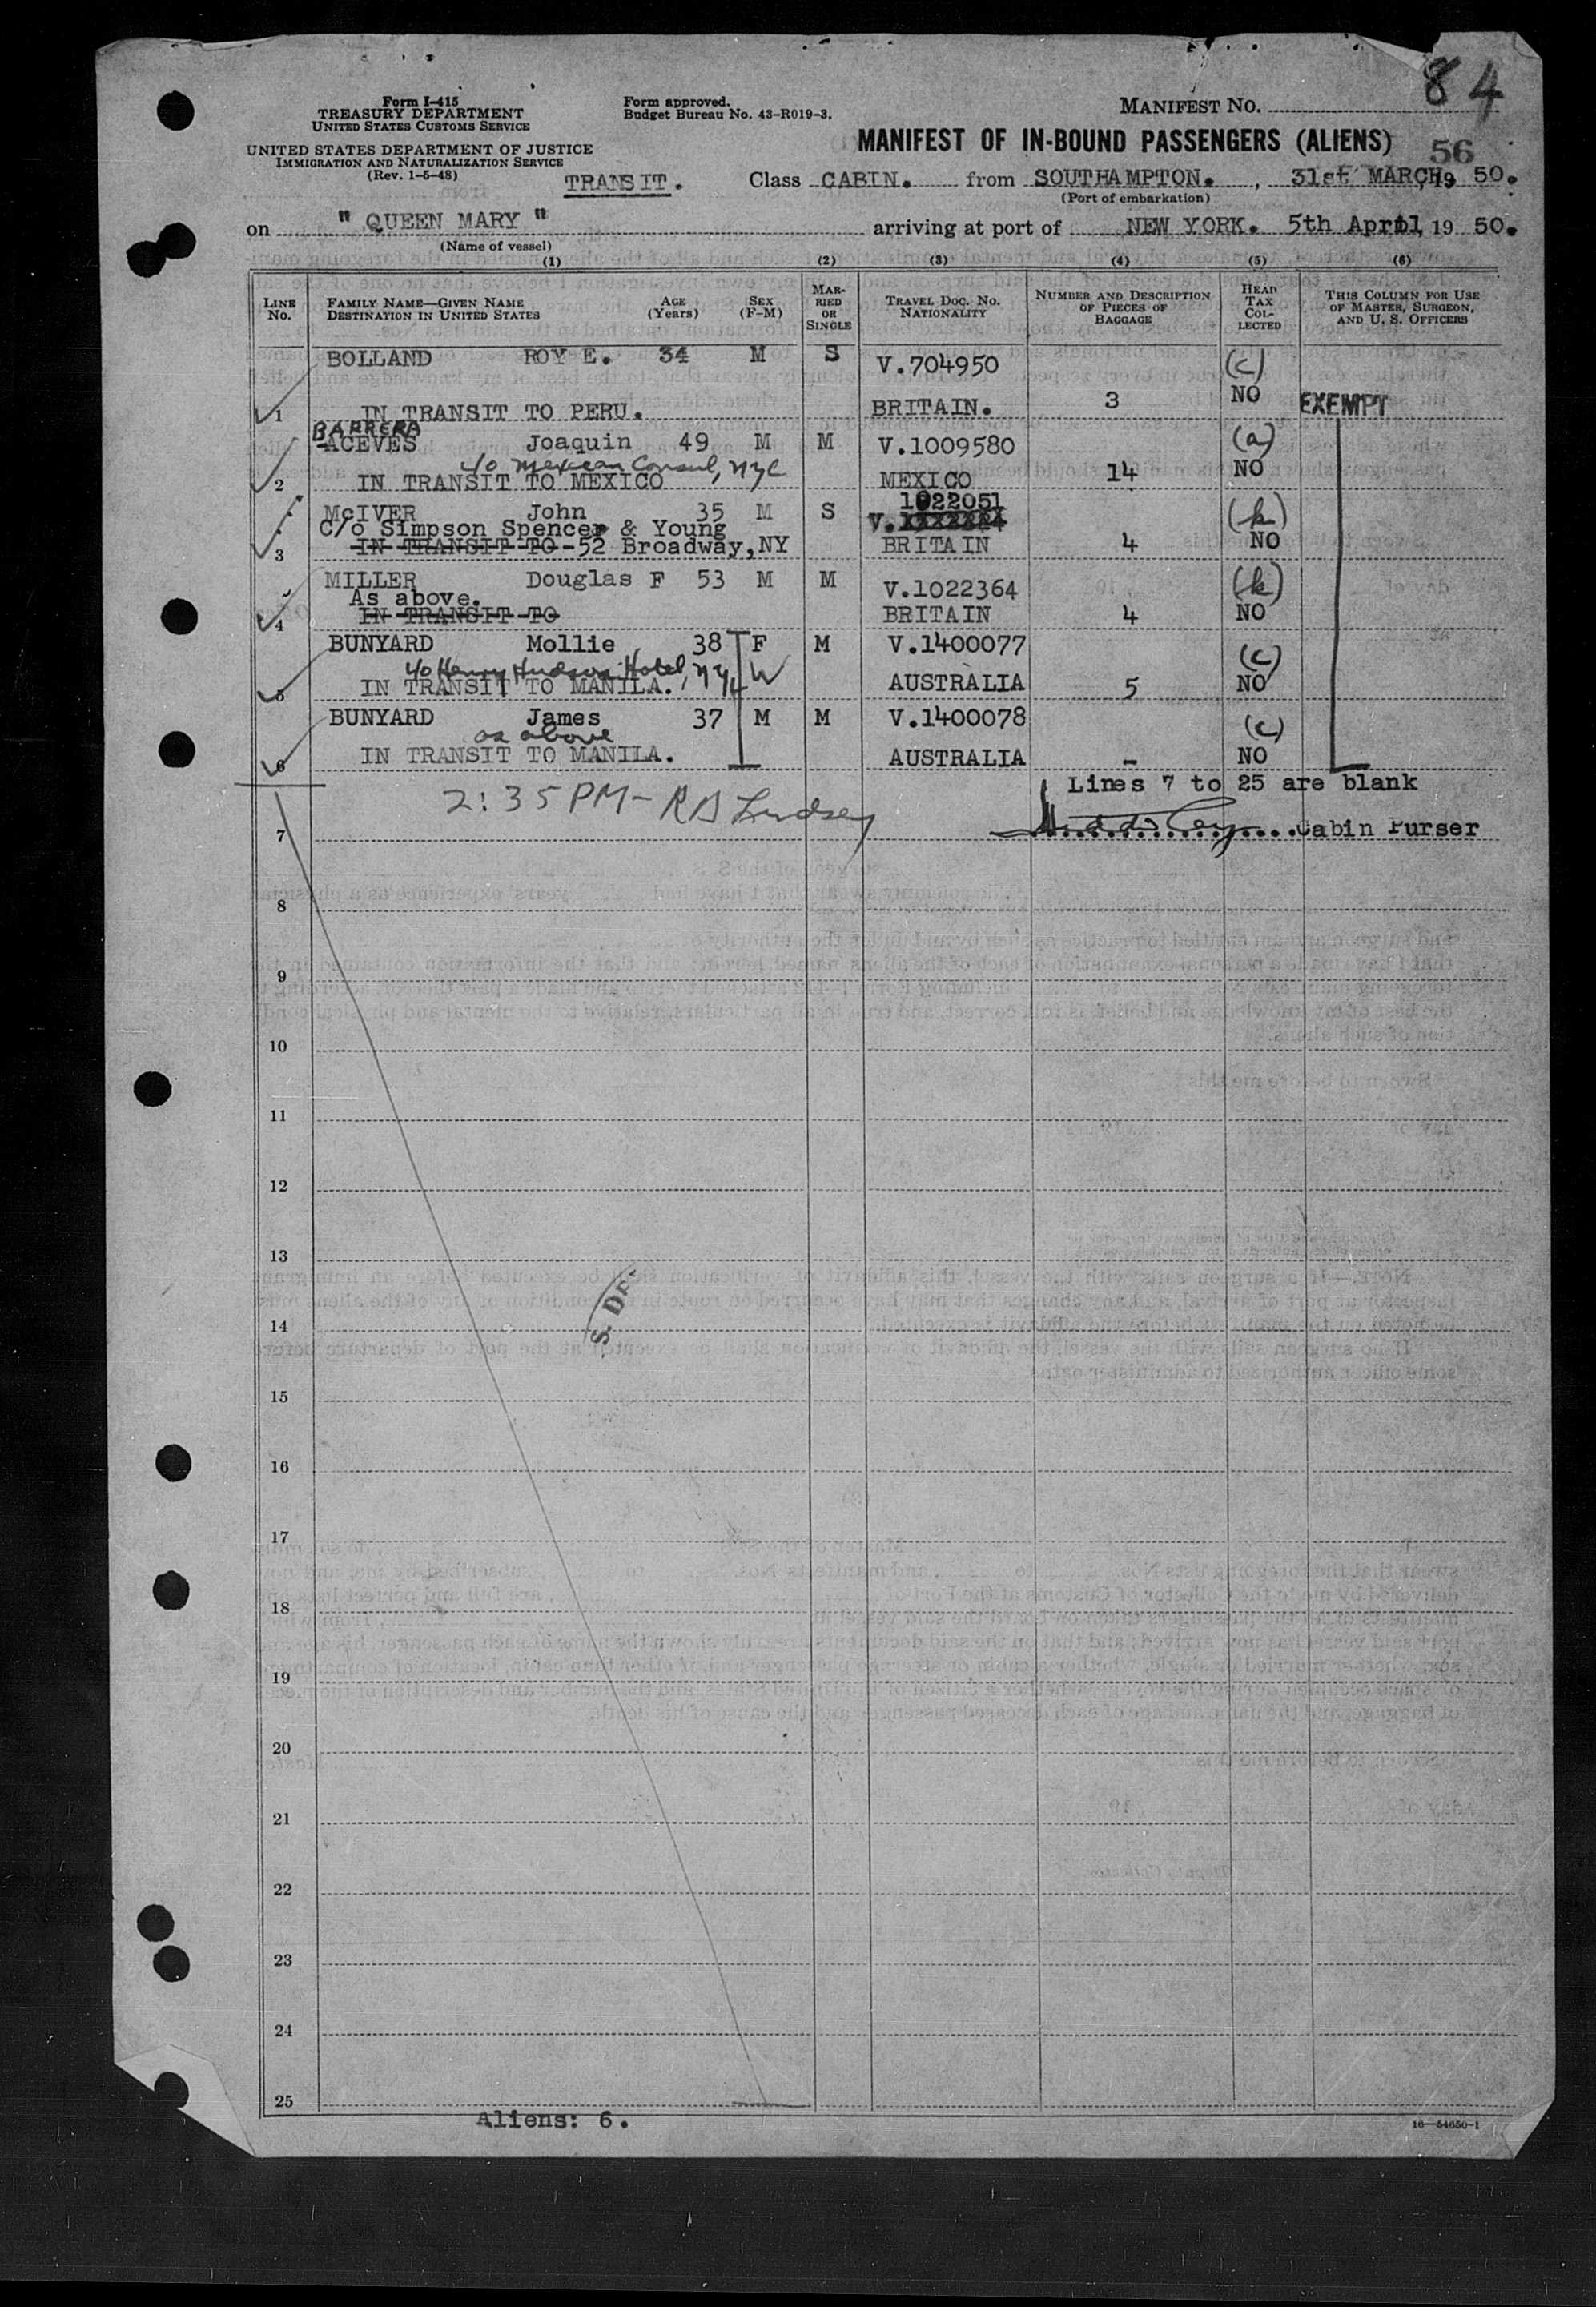 84
Form I-415
TREASURY DEPARTMENT
UNITED STATES CUSTOMS SERVICE
UNITED STATES DEPARTMENT OF JUSTICE
IMMIGRATION AND NATURALIZATION SERVICE
(Rev. 1-5-48)
Form approved.
Budget Bureau No. 43-R019-3.
MANIFEST No.
MANIFEST OF IN-BOUND PASSENGERS (ALIENS)
56
TRANSIT. Class CABIN. from SOUTHAMPTON. , 31st MARCH, 19 50.
(Port of embarkation)
on " QUEEN MARY " arriving at port of NEW YORK. 5th April, 19 50.
(Name of vessel)
(1) (2) (3) (4) (5) (6)
LINE No. FAMILY NAME—GIVEN NAME DESTINATION IN UNITED STATES AGE (Years) SEX (F-M) MARRIED OR SINGLE TRAVEL DOC. NO. NATIONALITY NUMBER AND DESCRIPTION OF PIECES OF BAGGAGE HEAD TAX COLLECTED THIS COLUMN FOR USE OF MASTER, SURGEON, AND U. S. OFFICERS
BOLLAND ROY E. 34 M S V.704950 (c)
1 IN TRANSIT TO PERU. BRITAIN. 3 NO EXEMPT
BARRERA
ACEVES Joaquin 49 M M V.1009580 (a)
c/o Mexican Consul, NYC
2 IN TRANSIT TO MEXICO MEXICO 14 NO
McIVER John 35 M S 1022051 (k)
C/o Simpson Spencer & Young V.
3 IN TRANSIT TO -52 Broadway, NY BRITAIN 4 NO
MILLER Douglas F 53 M M V.1022364 (k)
As above.
4 IN TRANSIT TO BRITAIN 4 NO
BUNYARD Mollie 38 F M V.1400077 (c)
c/o Henry Hudson Hotel, NY W
5 IN TRANSIT TO MANILA. AUSTRALIA 5 NO
BUNYARD James 37 M M V.1400078 (c)
as above
6 IN TRANSIT TO MANILA. AUSTRALIA - NO
Lines 7 to 25 are blank
2:35 PM - RB Lindsey
7 Cabin Purser
8
9
10
11
12
13
S. DE
14
15
16
17
18
19
20
21
22
23
24
25
Aliens: 6.
16—54650-1